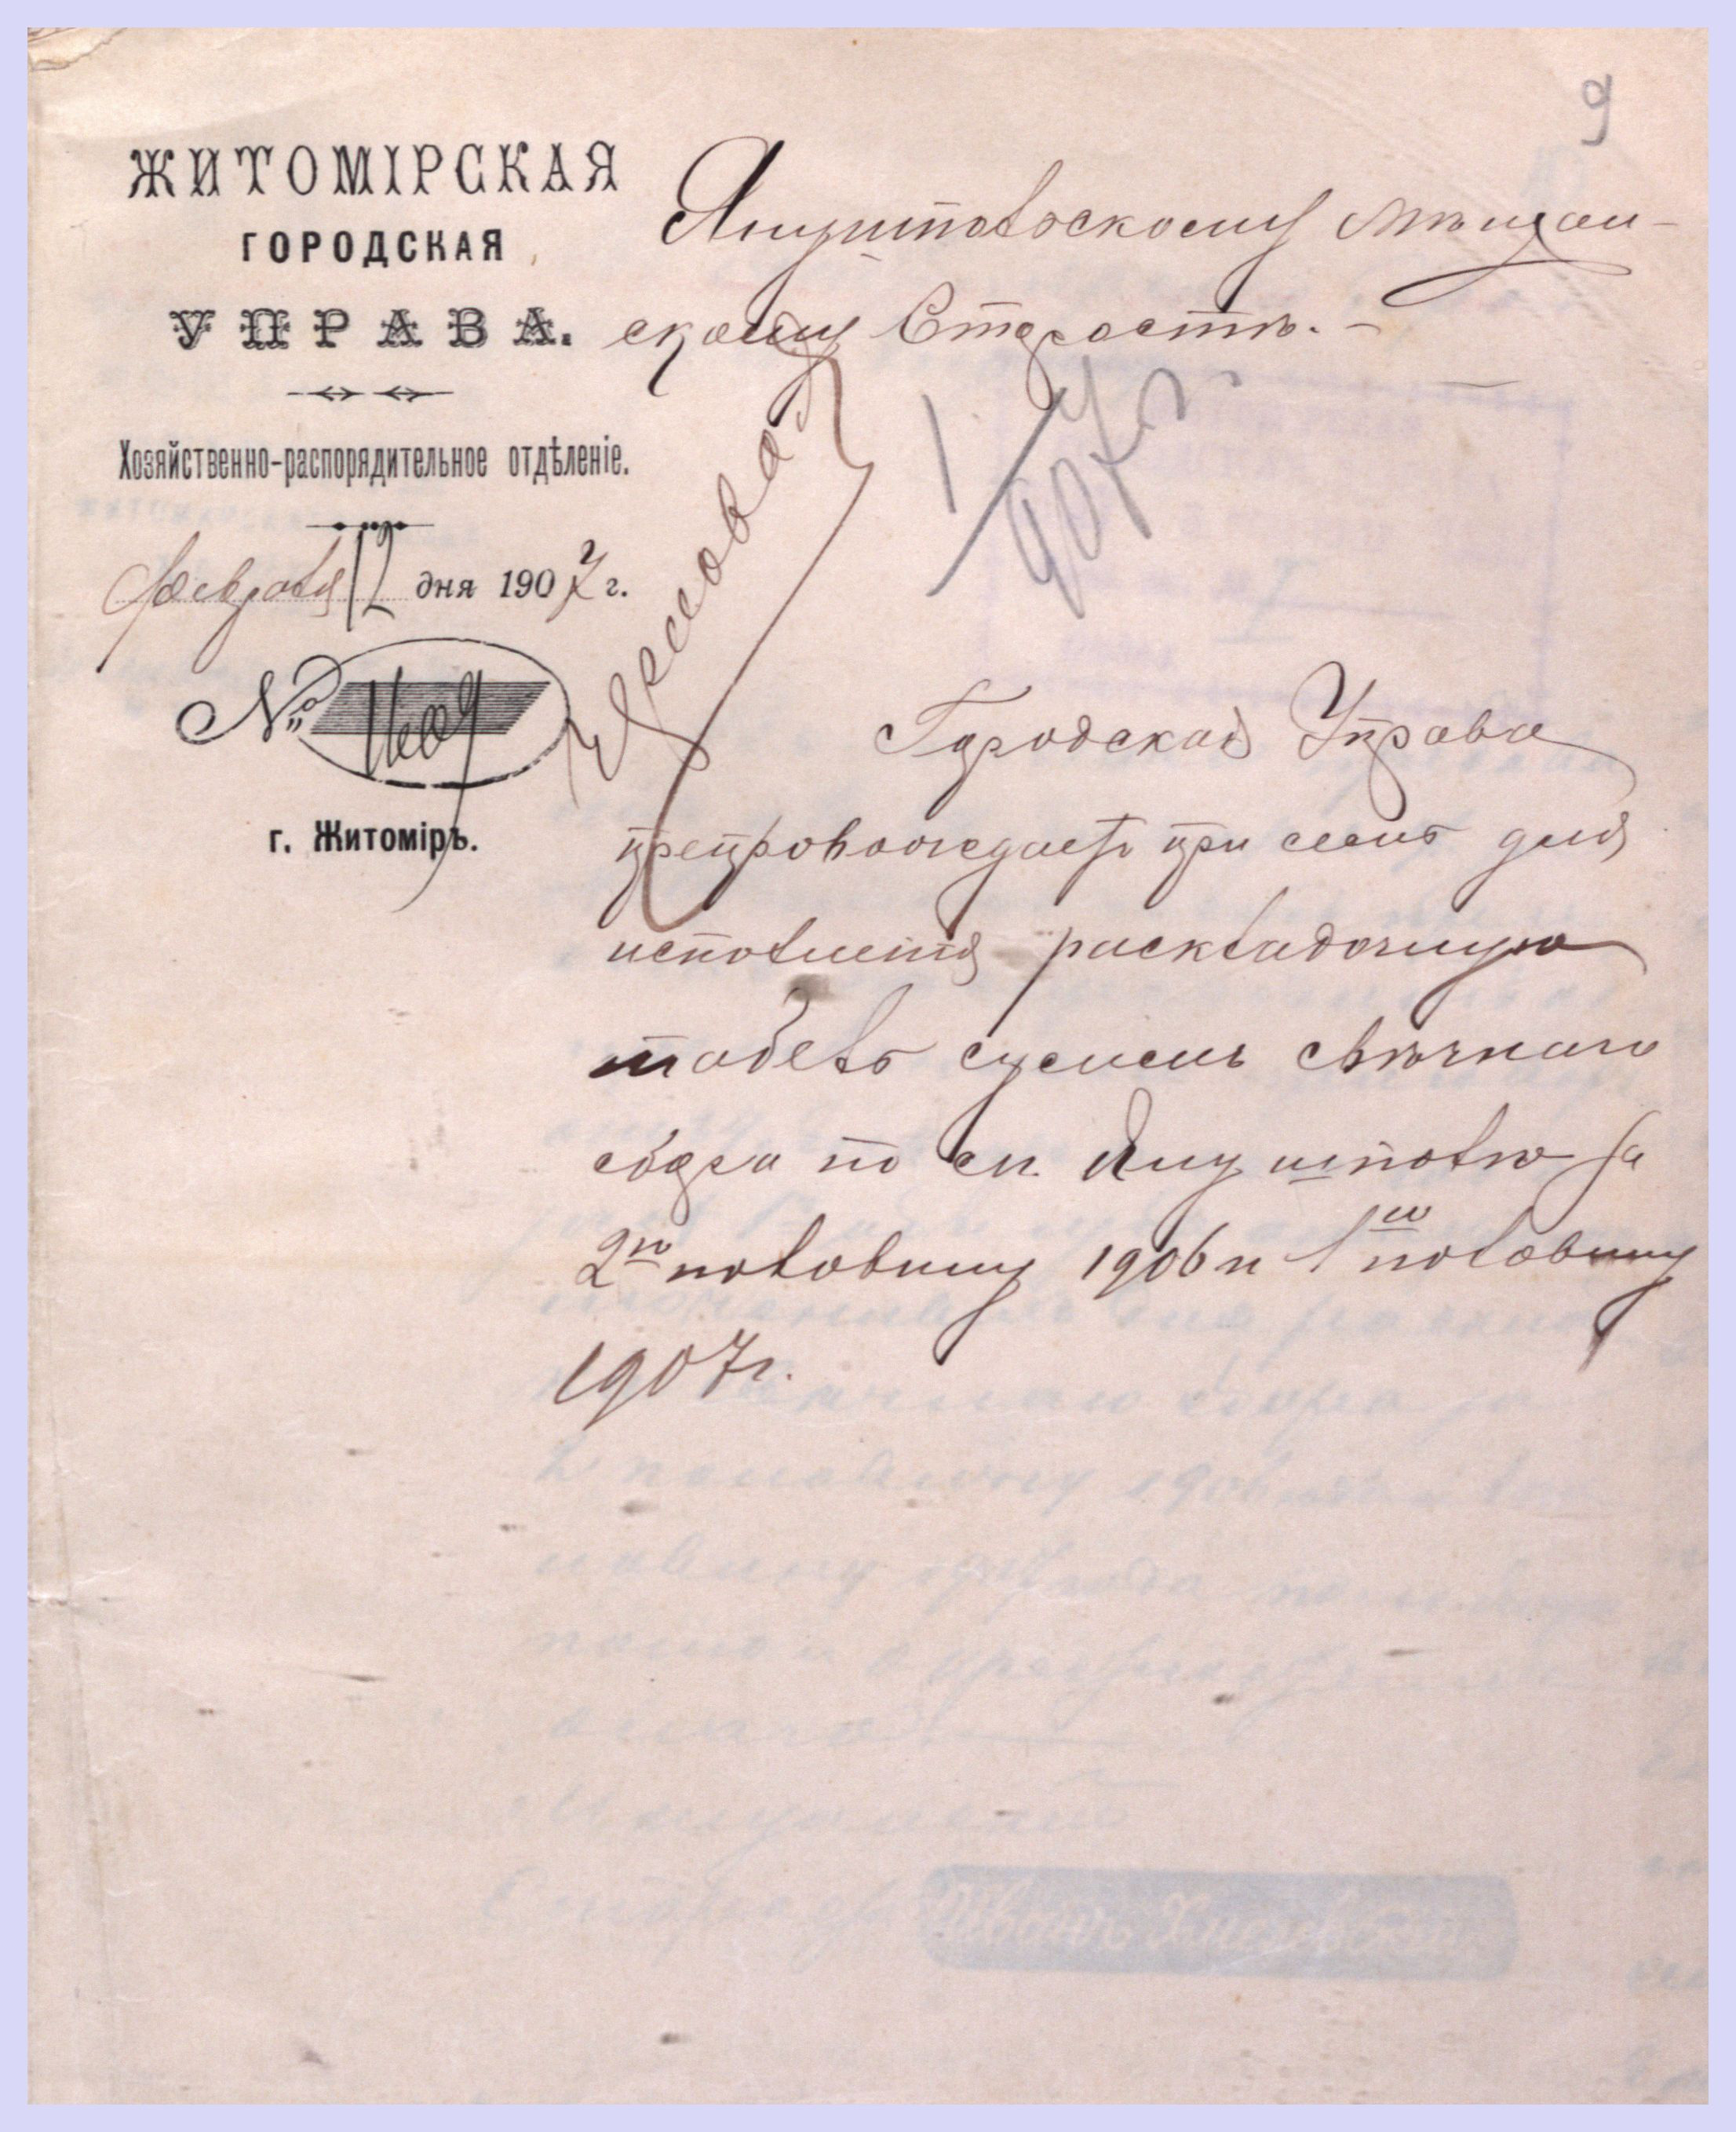 9
ЖИТОМІРСКАЯ
ГОРОДСКАЯ
УПРАВА.
Хозяйственно-распорядительное отдѣленіе.
Февраля 12 дня 1907 г.
№
г. Житоміръ.
Янушпольскому мѣщан-
скому Старостѣ.-
1/4
907 г.
Городская Управа
препровождаетъ при семъ для
исполненія раскладочную
табель суммъ свѣчнаго
сбора по м. Янушполю за
2ю половину 1906 и 1ю половину
1907 г.